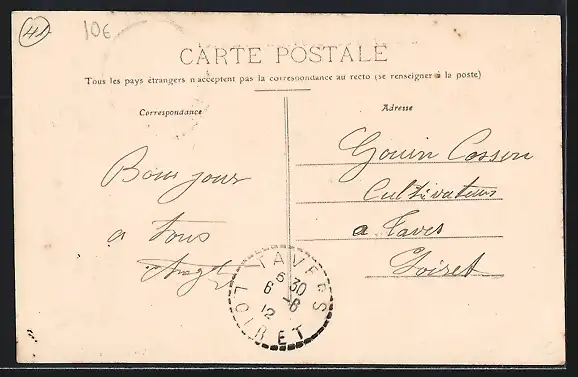 41
10€
CARTE POSTALE
Tous les pays étrangers n'acceptent pas la correspondance au recto (se renseigner à la poste)
Correspondance
Adresse
Bonjour
a tous
Gouin Cosson
Cultivateur
a Tavers
Loiret
TAVERS
6 30
6 -6
12
LOIRET